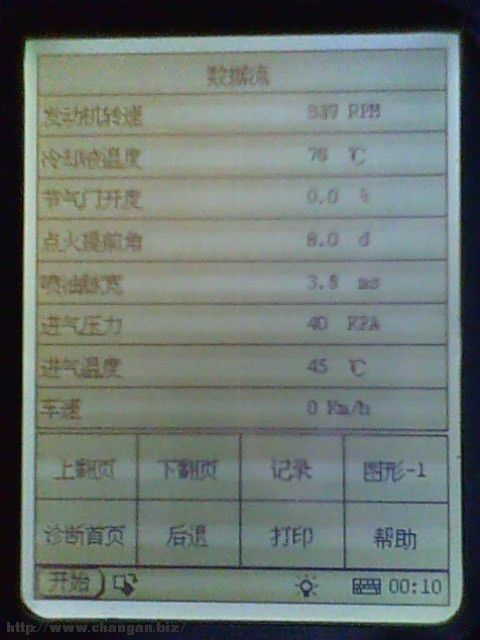 数据流
发动机转速 837 RPM
冷却液温度 76 ℃
节气门开度 0.0 %
点火提前角 8.0 d
喷油脉宽 3.8 ms
进气压力 40 KPA
进气温度 45 ℃
车速 0 Km/h
上翻页 下翻页 记录 图形-1
诊断首页 后退 打印 帮助
开始 00:10
http://www.changan.biz/